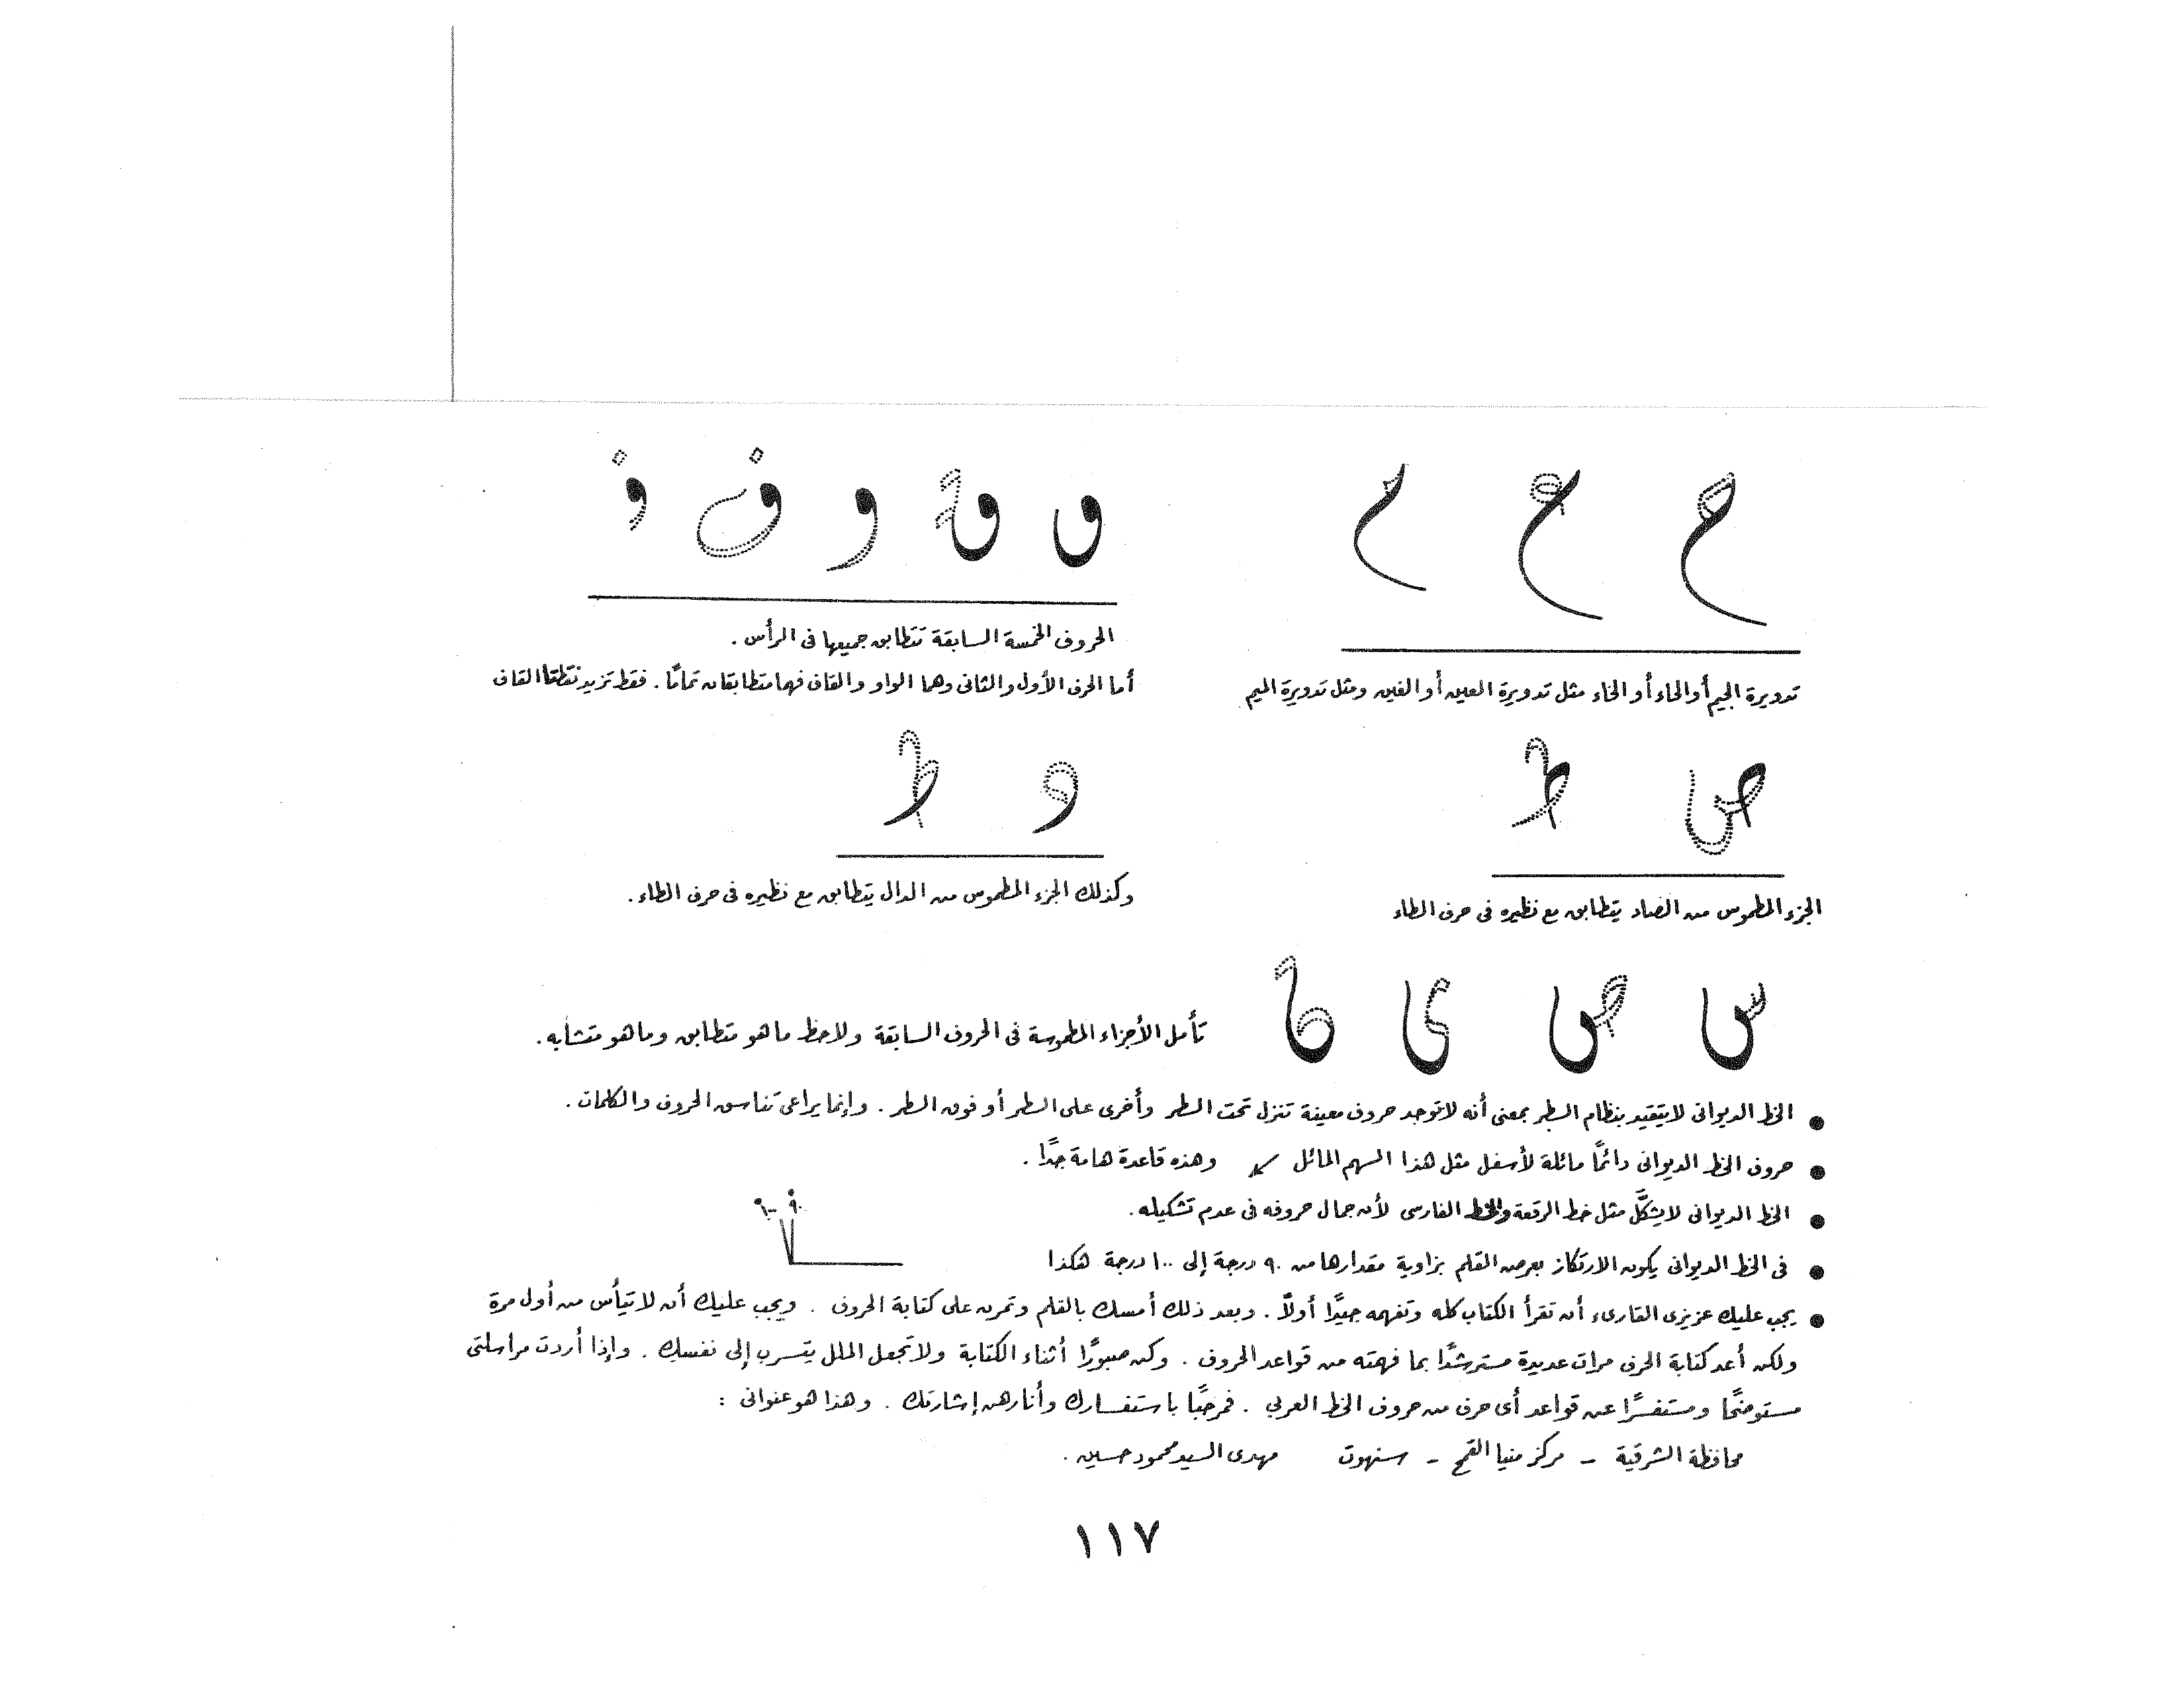 ح ع م
تدويرة الجيم أو الحاء أو الخاء مثل تدويرة العين أو الغين ومثل تدويرة الميم
و ق و ف ف
الحروف الخمسة السابقة تتطابق جميعها فى الرأس .
أما الحرف الأول والثانى وهما الواو والقاف فهما متطابقان تمامًا . فقط تزيد نقطتا القاف
ص ط
الجزء المطموس من الصاد يتطابق مع نظيره فى حرف الطاء
د ط
وكذلك الجزء المطموس من الدال يتطابق مع نظيره فى حرف الطاء .
س ص ى
تأمل الأجزاء المطموسة فى الحروف السابقة ولاحظ ما هو متطابق وما هو متشابه .
● الخط الديوانى لا يتقيد بنظام السطر بمعنى أنه لا توجد حروف معينة تنزل تحت السطر وأخرى على السطر أو فوق السطر . وإنما يراعى تناسق الحروف والكلمات .
● حروف الخط الديوانى دائمًا مائلة لأسفل مثل هذا السهم المائل ↙ وهذه قاعدة هامة جدًا .
● الخط الديوانى لا يشكَّل مثل خط الرقعة والخط الفارسى لأن جمال حروفه فى عدم تشكيله .
● فى الخط الديوانى يكون الارتكاز بعرض القلم بزاوية مقدارها من ٩٠ درجة إلى ١٠٠ درجة هكذا
٩٠ ١٠٠
● يجب عليك عزيزى القارىء أن تقرأ الكتاب كله وتفهمه جيدًا أولاً . وبعد ذلك أمسك بالقلم وتمرن على كتابة الحروف . ويجب عليك أن لا تيأس من أول مرة
ولكن أعد كتابة الحرف مرات عديدة مسترشدًا بما فهمته من قواعد الحروف . وكن صبورًا أثناء الكتابة ولا تجعل الملل يتسرب إلى نفسك . وإذا أردت مراسلتى
مستوضحًا ومستفسرًا عن قواعد أى حرف من حروف الخط العربي . فمرحبًا باستفسارك وأنا رهن إشارتك . وهذا هو عنوانى :
محافظة الشرقية - مركز منيا القمح - سنهوت مهدى السيد محمود حسين .
١١٧